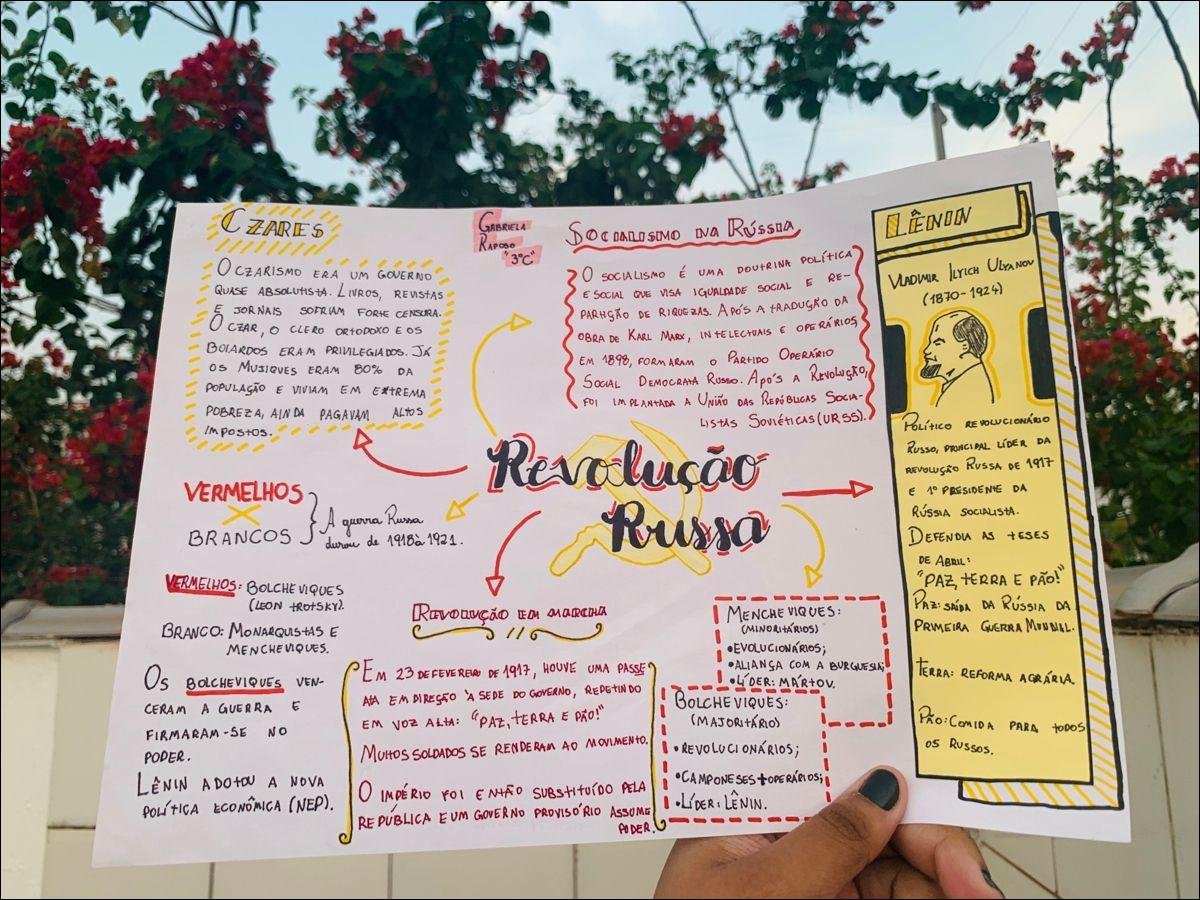 CZARES
O CZARISMO ERA UM GOVERNO
QUASE ABSOLUTISTA. LIVROS, REVISTAS
E JORNAIS SOFRIAM FORTE CENSURA.
O CZAR, O CLERO ORTODOXO E OS
BOIARDOS ERAM PRIVILEGIADOS. JÁ
OS MUJIQUES ERAM 80% DA
POPULAÇÃO E VIVIAM EM EXTREMA
POBREZA, AINDA PAGAVAM ALTOS
IMPOSTOS.
GABRIELA
RAPOSO
"3ºC"
SOCIALISMO NA RÚSSIA
O SOCIALISMO É UMA DOUTRINA POLÍTICA
E SOCIAL QUE VISA IGUALDADE SOCIAL E RE-
PARTIÇÃO DE RIQUEZAS. APÓS A TRADUÇÃO DA
OBRA DE KARL MARX, INTELECTUAIS E OPERÁRIOS,
EM 1898, FORMARAM O PARTIDO OPERÁRIO
SOCIAL DEMOCRATA RUSSO. APÓS A REVOLUÇÃO,
FOI IMPLANTADA A UNIÃO DAS REPÚBLICAS SOCIA-
LISTAS SOVIÉTICAS (URSS).
Revolução
Russa
VERMELHOS
X
BRANCOS
A guerra Russa
durou de 1918 à 1921.
VERMELHOS: BOLCHEVIQUES
(LEON TROTSKY).
BRANCO: MONARQUISTAS E
MENCHEVIQUES.
OS BOLCHEVIQUES VEN-
CERAM A GUERRA E
FIRMARAM-SE NO
PODER.
LÊNIN ADOTOU A NOVA
POLÍTICA ECONÔMICA (NEP).
REVOLUÇÃO EM MARCHA
EM 23 DE FEVEREIRO DE 1917, HOUVE UMA PASSE
ATA EM DIREÇÃO À SEDE DO GOVERNO, REPETINDO
EM VOZ ALTA: "PAZ, TERRA E PÃO!"
MUITOS SOLDADOS SE RENDERAM AO MOVIMENTO.
O IMPÉRIO FOI ENTÃO SUBSTITUÍDO PELA
REPÚBLICA E UM GOVERNO PROVISÓRIO ASSUME
PODER.
MENCHEVIQUES:
(MINORITÁRIOS)
•EVOLUCIONÁRIOS;
•ALIANÇA COM A BURGUESIA;
•LÍDER: MÁRTOV.
BOLCHEVIQUES:
(MAJORITÁRIO)
•REVOLUCIONÁRIOS;
•CAMPONESES+OPERÁRIOS;
•LÍDER: LÊNIN.
LÊNIN
VLADIMIR ILYICH ULYANOV
(1870-1924)
POLÍTICO REVOLUCIONÁRIO
RUSSO, PRINCIPAL LÍDER DA
REVOLUÇÃO RUSSA DE 1917
E 1º PRESIDENTE DA
RÚSSIA SOCIALISTA.
DEFENDIA AS TESES
DE ABRIL:
"PAZ, TERRA E PÃO!"
PAZ: SAÍDA DA RÚSSIA DA
PRIMEIRA GUERRA MUNDIAL.
TERRA: REFORMA AGRÁRIA.
PÃO: COMIDA PARA TODOS
OS RUSSOS.